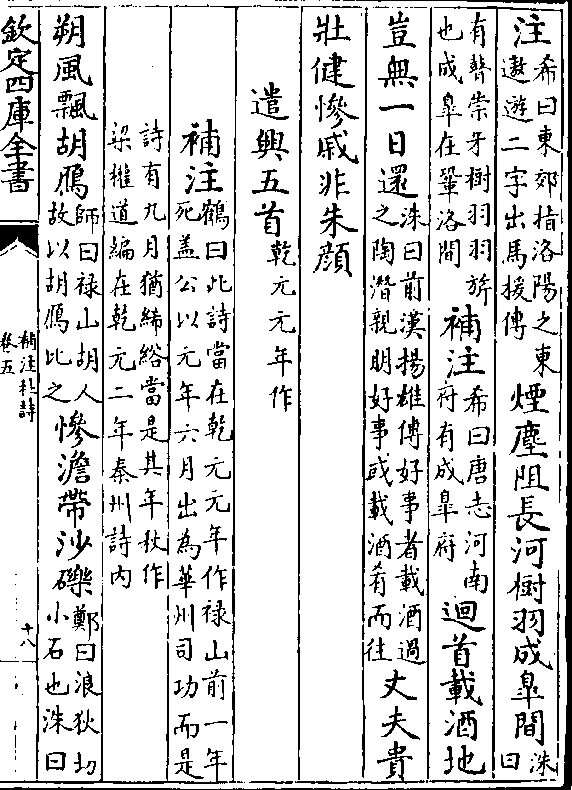 注希曰東郊指洛陽之東遨遊二字出馬援傳煙塵阻長河樹羽成臯間洙曰
有瞽崇牙樹羽羽旂也成臯在鞏洛間補注希曰唐志河南府有成臯府迴首載酒地
豈無一日還洙曰前漢揚雄傳好事者載酒過之陶潛親朋好事或載酒肴而往丈夫貴
壯健慘戚非朱顔
遣興五首乾元元年作
補注鶴曰此詩當在乾元元年作禄山前一年死盖公以元年六月出為華州司功而是
詩有九月猶絺綌當是其年秋作梁權道編在乾元二年秦州詩内
朔風飄胡鴈師曰禄山胡人故以胡鴈比之慘澹帶沙礫鄭曰浪狄切小石也洙曰
欽定四庫全書
補注杜詩
卷五
十八